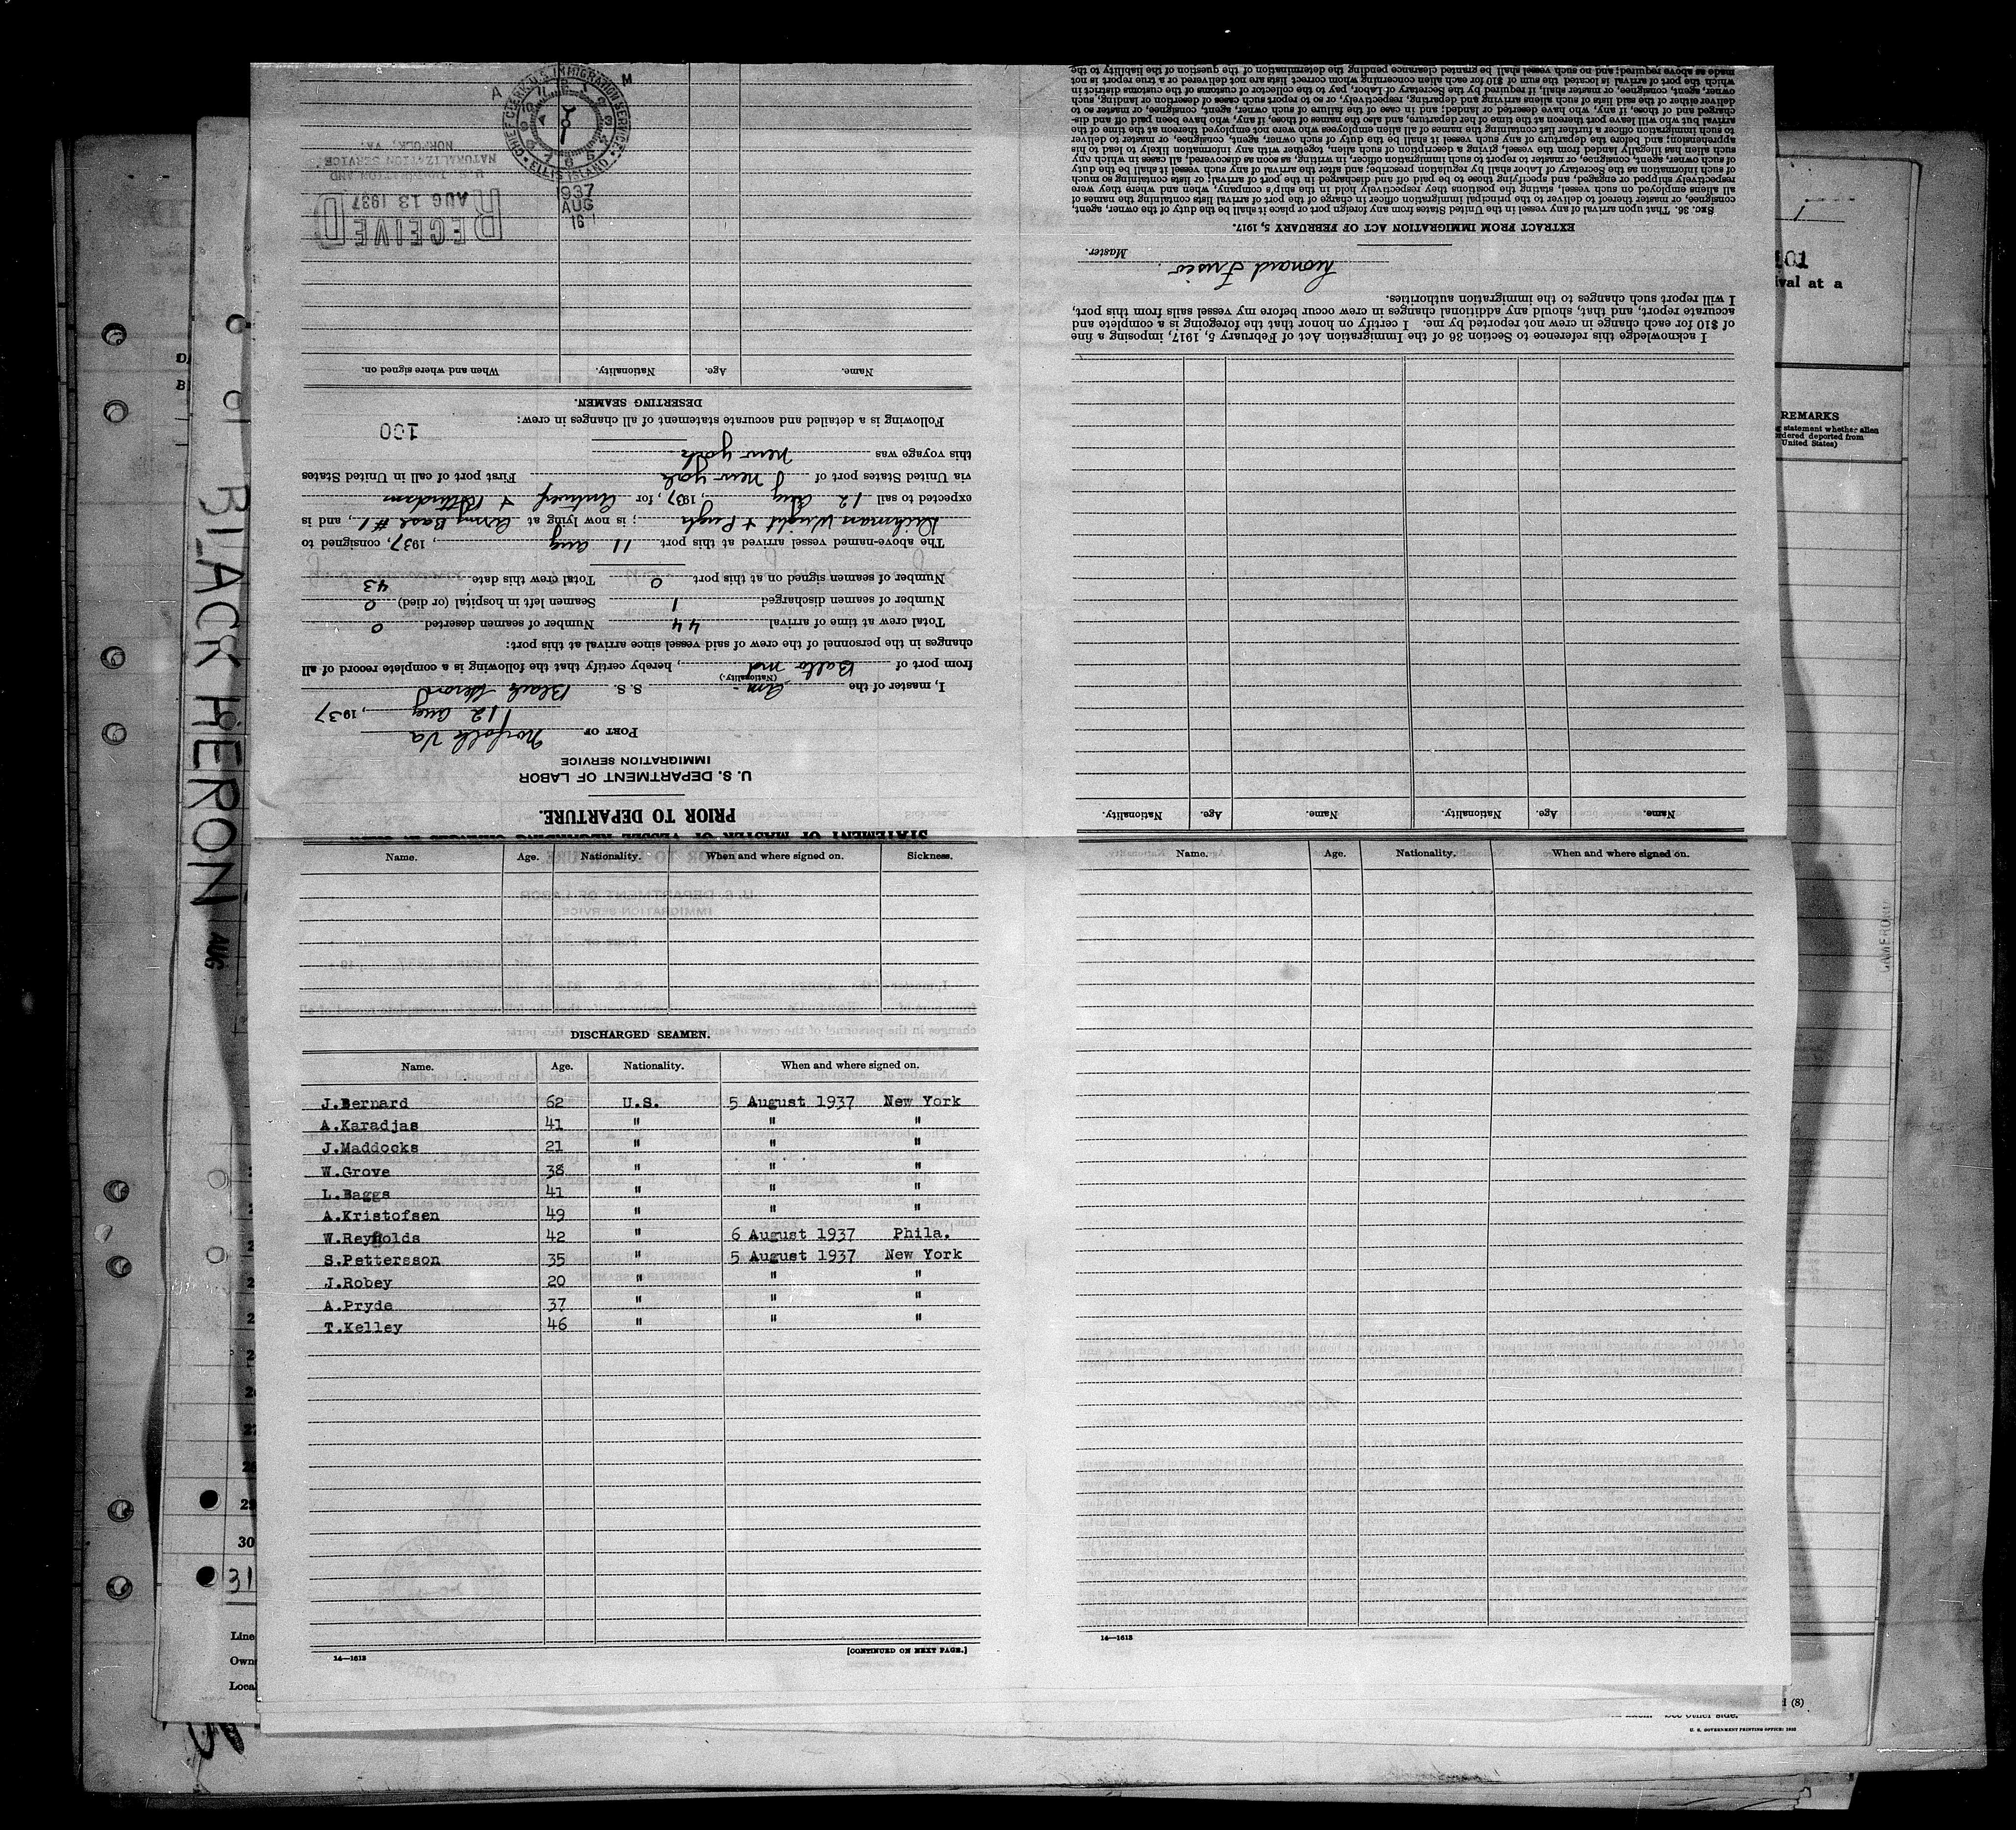 BLACK HERON
AUG
STATEMENT OF MASTER OF VESSEL REGARDING CHANGES IN CREW
PRIOR TO DEPARTURE.
U. S. DEPARTMENT OF LABOR
IMMIGRATION SERVICE
PORT OF Norfolk Va
12 Aug, 1937
I, master of the Am- S. S. Black Heron
(Nationality.)
from port of Balto Md, hereby certify that the following is a complete record of all
changes in the personnel of the crew of said vessel since arrival at this port:
Total crew at time of arrival 44 Number of seamen deserted 0
Number of seamen discharged 1 Seamen left in hospital (or died) 0
Number of seamen signed on at this port 0 Total crew this date 43
The above-named vessel arrived at this port 11 Aug, 1937, consigned to
Wright + Pugh; is now lying at Army Base #1, and is
expected to sail 12 Aug, 1937, for Antwerp + Rotterdam
via United States port of New York First port of call in United States
this voyage was New York
Following is a detailed and accurate statement of all changes in crew:
100
DESERTING SEAMEN.
Name. Age. Nationality. When and where signed on.
RECEIVED
AUG 13 1937
U. S. IMMIGRATION AND
NATURALIZATION SERVICE
NORFOLK, VA.
CHIEF CLERK U.S. IMMIGRATION SERVICE
ELLIS ISLAND
A M
1937
AUG
16
Name. Age. Nationality. Name. Age. Nationality.
I acknowledge this reference to Section 36 of the Immigration Act of February 5, 1917, imposing a fine
of $10 for each change in crew not reported by me. I certify on honor that the foregoing is a complete and
accurate report, and that, should any additional changes in crew occur before my vessel sails from this port,
I will report such changes to the immigration authorities.
Leonard
Master.
EXTRACT FROM IMMIGRATION ACT OF FEBRUARY 5, 1917.
SEC. 36. That upon arrival of any vessel in the United States from any foreign port or place it shall be the duty of the owner, agent,
consignee, or master thereof to deliver to the principal immigration officer in charge of the port of arrival lists containing the names of
all aliens employed on such vessel, stating the positions they respectively hold in the ship's company, when and where they were
respectively shipped or engaged, and specifying those to be paid off and discharged in the port of arrival; or lists containing so much
of such information as the Secretary of Labor shall by regulation prescribe; and after the arrival of any such vessel it shall be the duty
of such owner, agent, consignee, or master to report to such immigration officer, in writing, as soon as discovered, all cases in which any
such alien has illegally landed from the vessel, giving a description of such alien, together with any information likely to lead to his
apprehension; and before the departure of any such vessel it shall be the duty of such owner, agent, consignee, or master to deliver
to such immigration officer a further list containing the names of all alien employees who were not employed thereon at the time of the
arrival but who will leave port thereon at the time of her departure, and also the names of those, if any, who have been paid off and dis-
charged and of those, if any, who have deserted or landed; and in case of the failure of such owner, agent, consignee, or master so to
deliver either of the said lists of such aliens arriving and departing, respectively, or so to report such cases of desertion or landing, such
owner, agent, consignee, or master shall, if required by the Secretary of Labor, pay to the collector of customs of the customs district in
which the port of arrival is located the sum of $10 for each alien concerning whom correct lists are not delivered or a true report is not
made as above required; and no such vessel shall be granted clearance pending the determination of the question of the liability to the
Name. Age. Nationality. When and where signed on. Sickness.
DISCHARGED SEAMEN.
Name. Age. Nationality. When and where signed on.
J.Bernard 62 U.S. 5 August 1937 New York
A.Karadjas 41 " " "
J.Maddocks 21 " " "
W.Grove 38 " " "
L.Baggs 41 " " "
A.Kristofsen 49 " " "
W.Reynolds 42 " 6 August 1937 Phila.
S.Pettersson 35 " 5 August 1937 New York
J.Robey 20 " " "
A.Pryde 37 " " "
T.Kelley 46 " " "
14—1613
[CONTINUED ON NEXT PAGE.]
Name. Age. Nationality. When and where signed on.
14—1613
101
ival at a
REMARKS
statement whether alien
ordered deported from
United States)
29
30
31
Line
Own
Loca
(8)
See other side.
U. S. GOVERNMENT PRINTING OFFICE